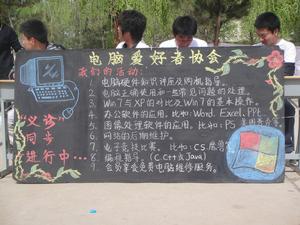 电脑爱好者协会
我们的活动:
1. 电脑硬件知识讲座及购机指导。
2. 电脑正确使用和一些常见问题的处理。
3. Win7与XP的对比及Win7的基本操作。
4. 办公软件的应用。比如: Word. Excel. PPt
5. 图像处理软件的应用。比如: PS
6. 网络的后期维护。
7. 电子竞技比赛。比如: CS.
8. 编程指导。(C. C++ 或 Java)
9. 会员享受免费电脑维修服务。
"义诊"
同步
进行中…